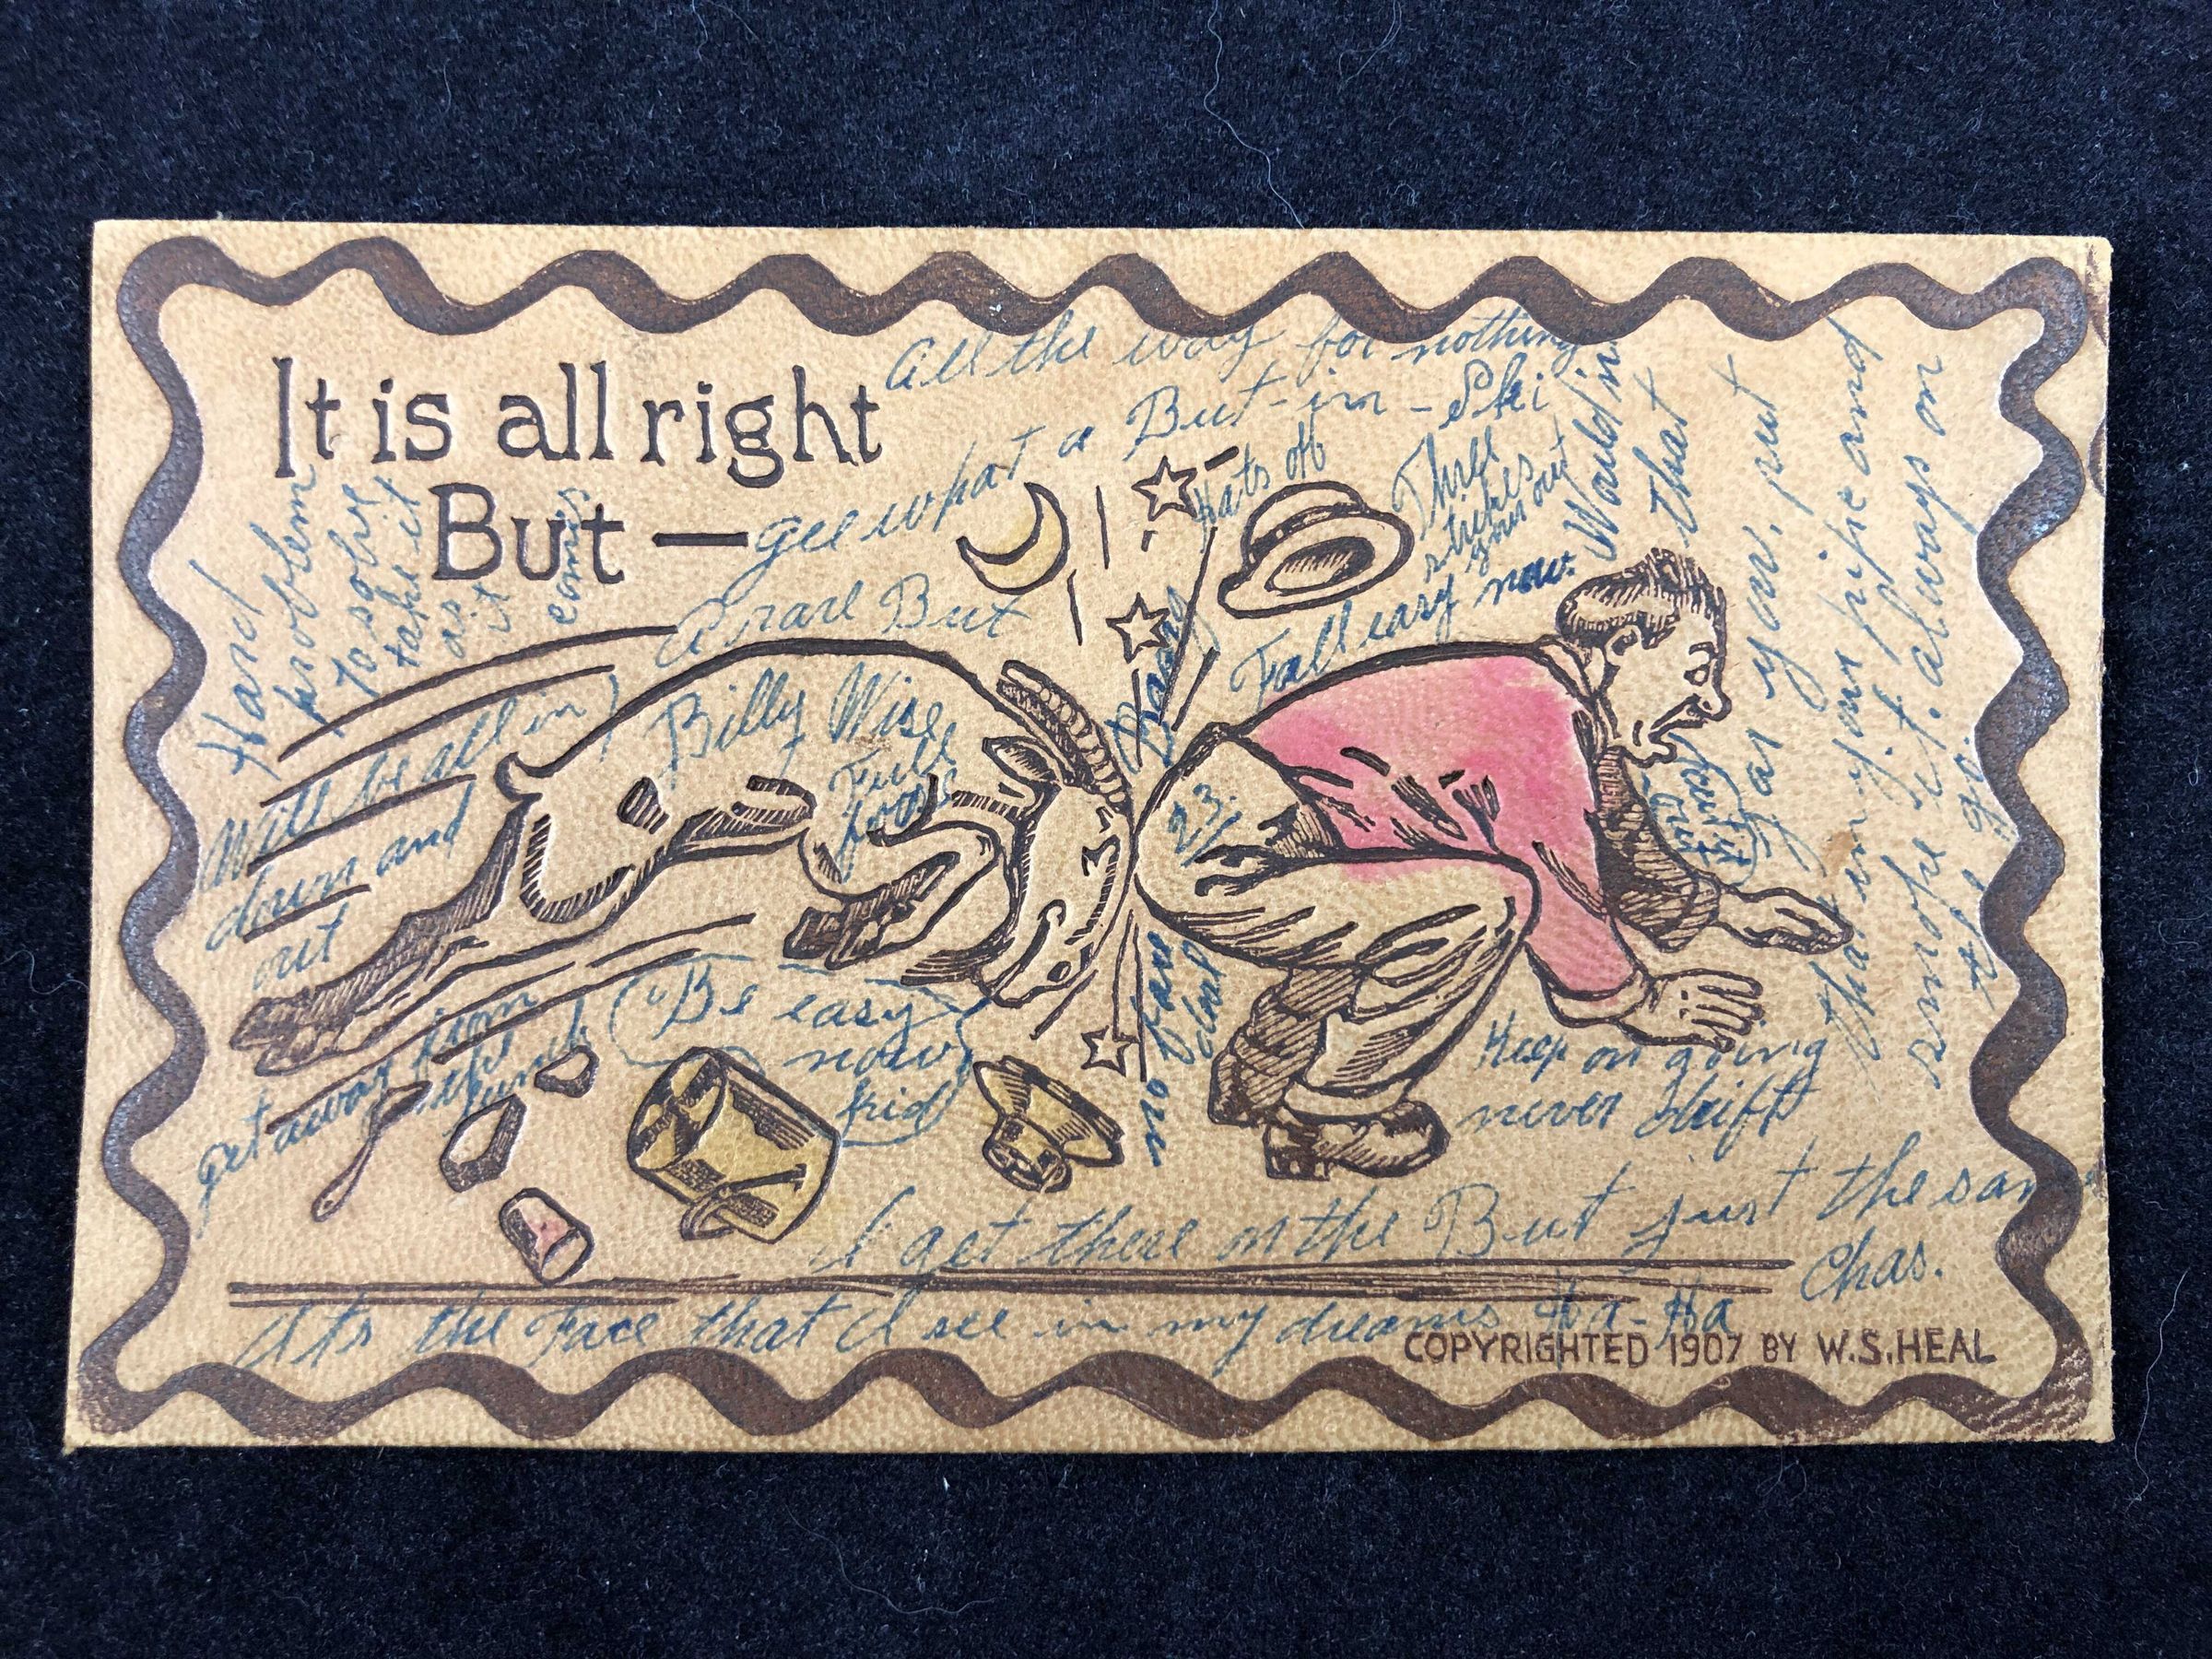 It is all right
But —
All the way for nothing
Gee what a But-in-Ski
A rare But
Hard
problem
To solve
take it
as
it
comes
Will be all in
down and
out
Billy Wise
Full
foods
Hats off
Three
strikes
your out
Fall easy now.
Bang
23.
Would in
that
jar you, put
that in your pipe and
smoke it. always on
the go.
"Be easy
now
kid
no fare
deal
get away from
the
bunch
Keep on going
never drift
I get there on the But just the sam
Chas.
Its the Face that I see in my dreams Ha-Ha
COPYRIGHTED 1907 BY W.S.HEAL